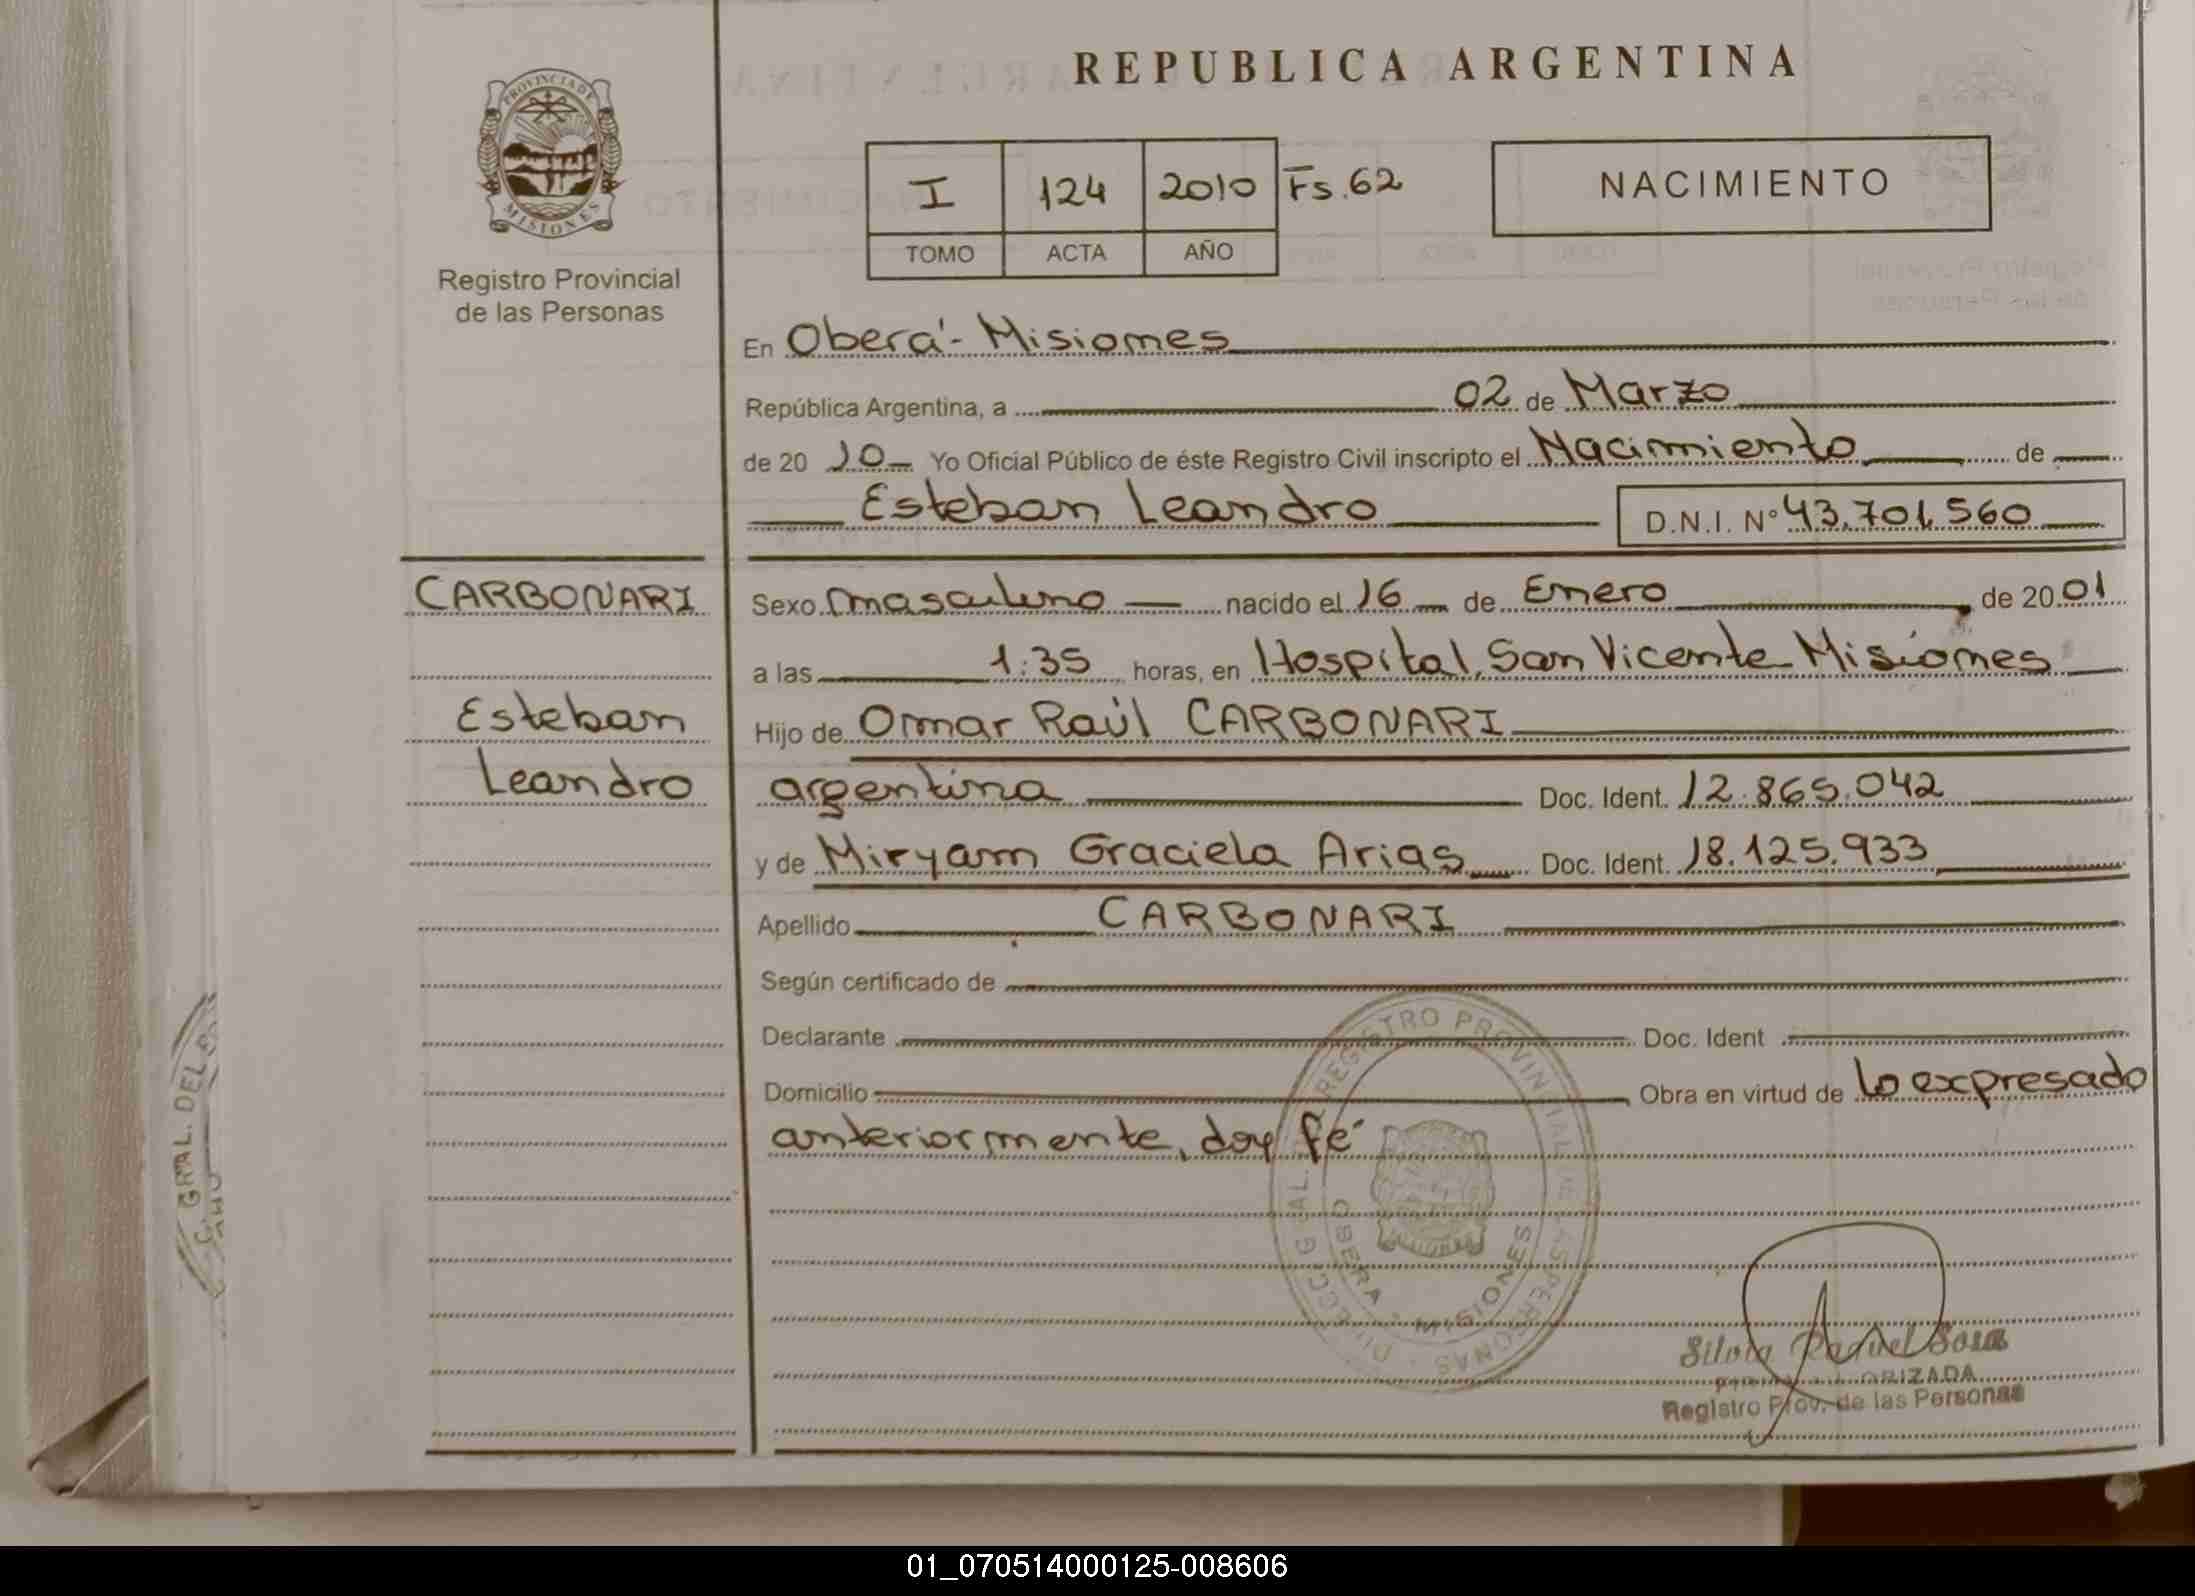 REPUBLICA ARGENTINA
PROVINCIA DE
MISIONES
Registro Provincial
de las Personas
I 124 2010 Fs. 62
TOMO ACTA AÑO
NACIMIENTO
En Oberá - Misiones
República Argentina, a 02 de Marzo
de 20 10 Yo Oficial Público de éste Registro Civil inscripto el Nacimiento de
Esteban Leandro D.N.I. Nº 43.701.560
CARBONARI
Esteban
Leandro
Sexo masculino nacido el 16 de Enero de 20 01
a las 1:35 horas, en Hospital, San Vicente Misiones
Hijo de Omar Raúl CARBONARI
argentina Doc. Ident. 12.865.042
y de Miryam Graciela Arias Doc. Ident. 18.125.933
Apellido CARBONARI
Según certificado de
Declarante Doc. Ident
Domicilio Obra en virtud de lo expresado
anteriormente, doy fé
REGISTRO PROVINCIAL DE LAS PERSONAS
OBERA - MISIONES
GRAL. DEL
Silvia Raquel Sosa
Registro Prov. de las Personas
01_070514000125-008606